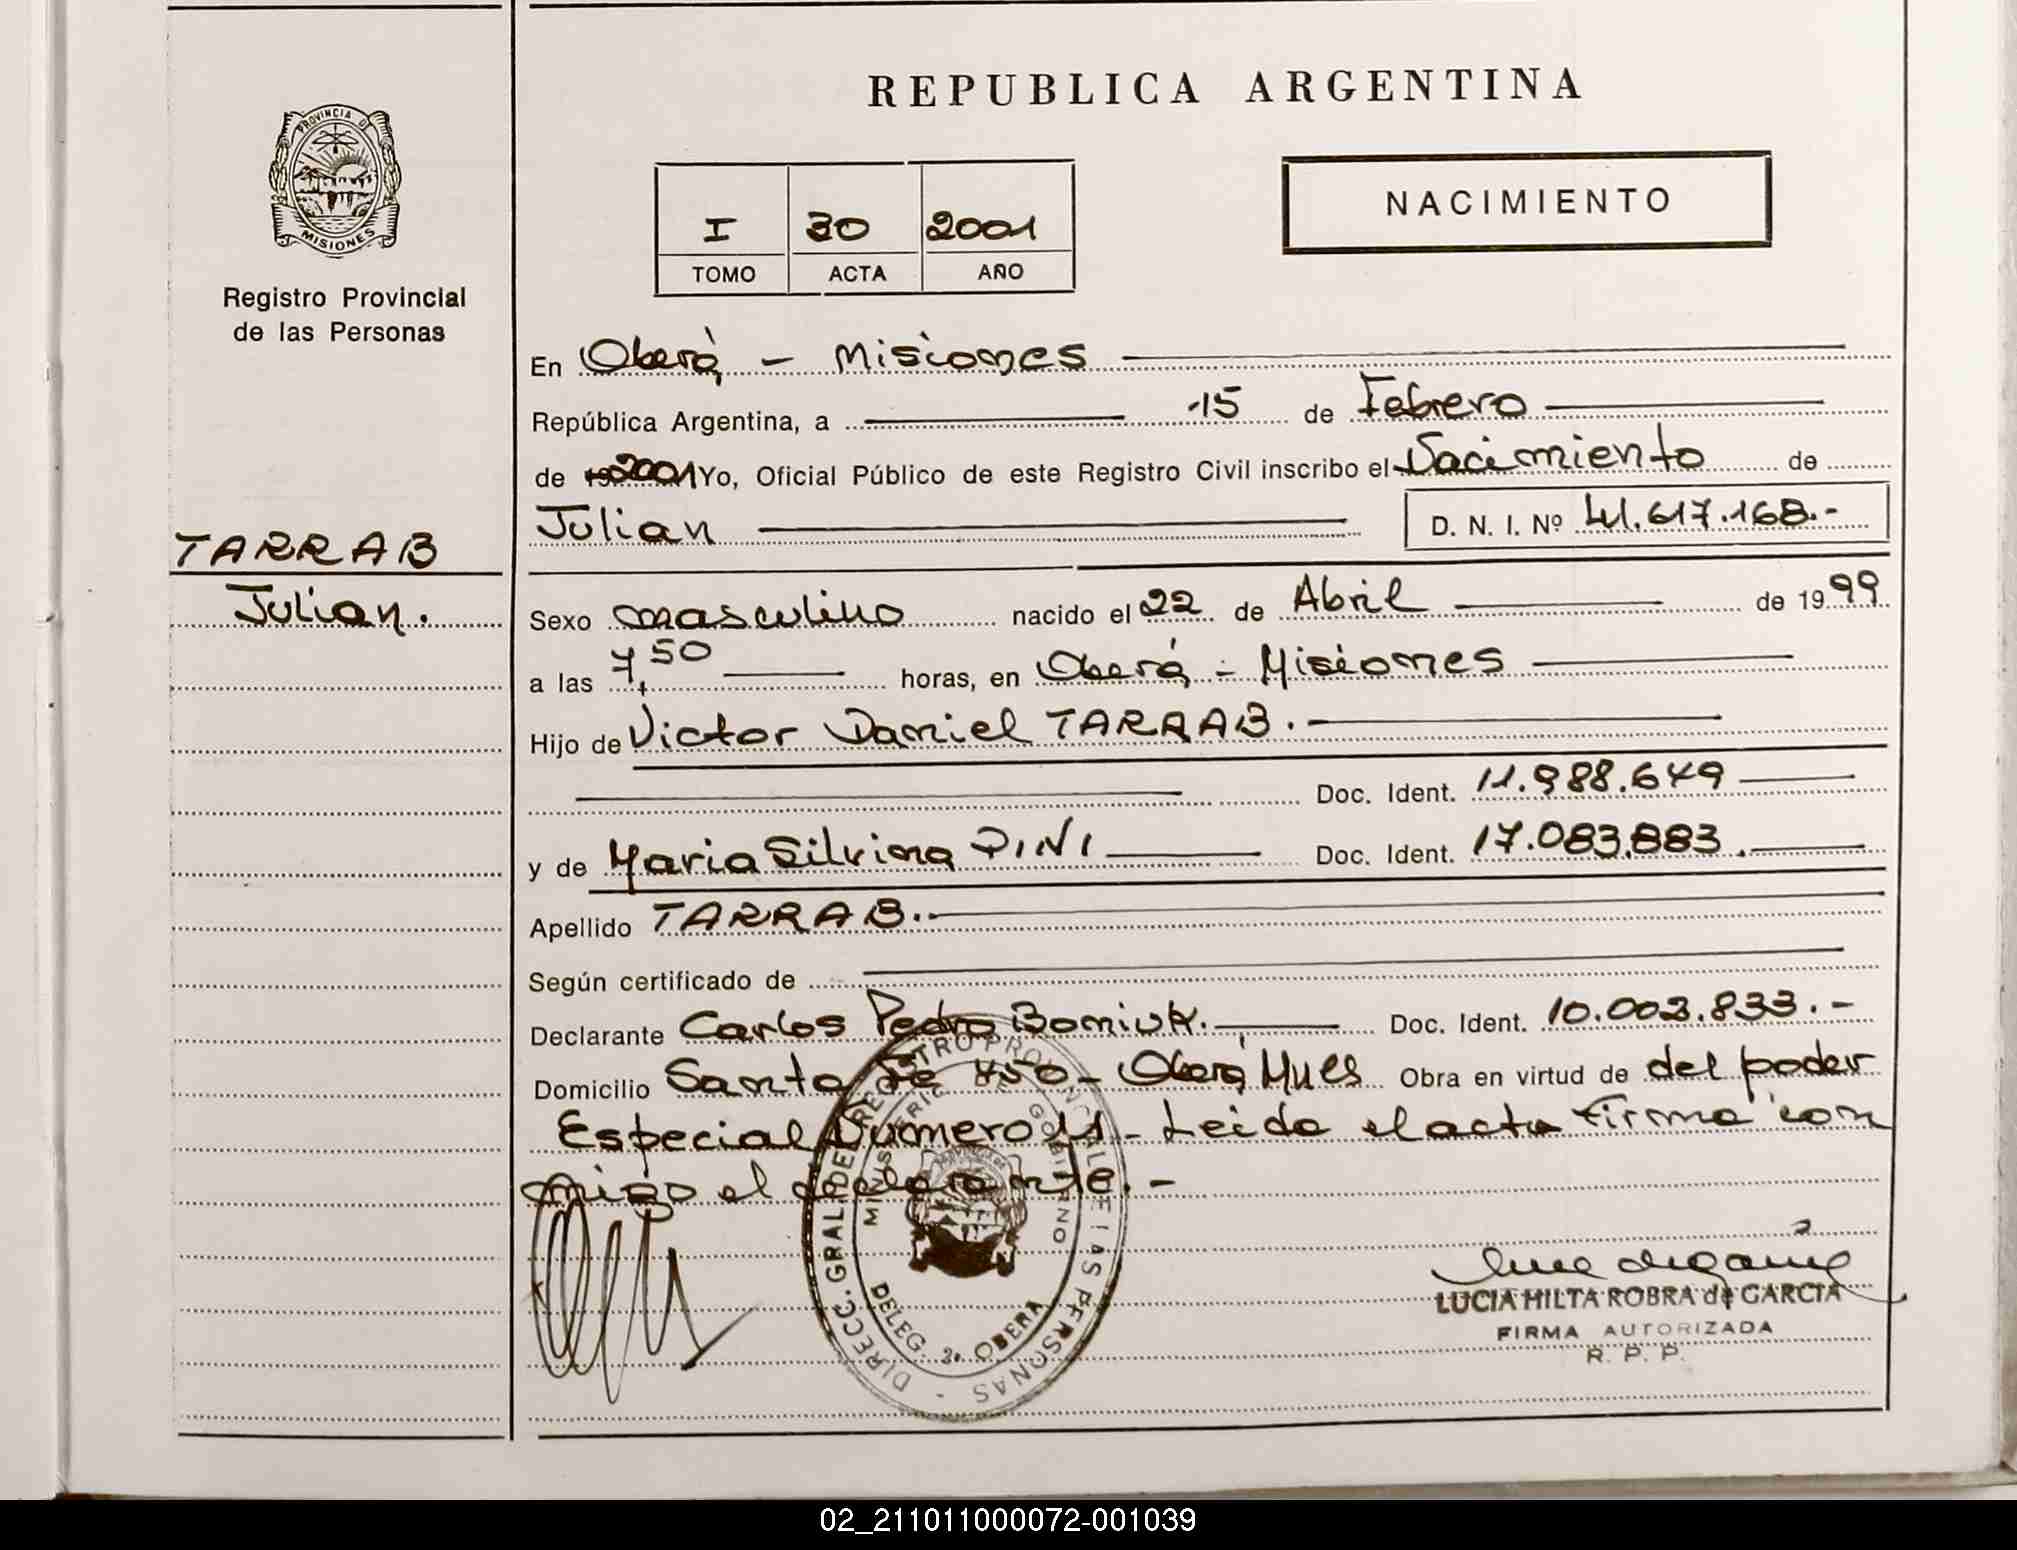 REPUBLICA ARGENTINA
PROVINCIA DE
MISIONES
Registro Provincial
de las Personas
I 30 2001
TOMO ACTA AÑO
NACIMIENTO
En Oberá - Misiones
República Argentina, a 15 de Febrero
de 19 2001 Yo, Oficial Público de este Registro Civil inscribo el Nacimiento de
Julian D. N. I. Nº 41.617.168.-
TARRAB
Julian.
Sexo masculino nacido el 22 de Abril de 1999
a las 7,50 horas, en Oberá - Misiones
Hijo de Victor Daniel TARRAB.
Doc. Ident. 11.988.649
y de Maria Silvina PINI Doc. Ident. 17.083.883.
Apellido TARRAB.-
Según certificado de
Declarante Carlos Pedro Boniuk. Doc. Ident. 10.003.833.-
Domicilio Santa Fe 450 - Oberá Mnes Obra en virtud de del poder
Especial Número 11 - Leida el acta Firma con
migo el declarante.-
DIRECC. GRAL. DEL REGISTRO PROVINCIAL DE LAS PERSONAS
MINISTERIO DE GOBIERNO
DELEG. 2ª OBERA
LUCIA HILTA ROBRA de GARCIA
FIRMA AUTORIZADA
R. P. P.
02_211011000072-001039